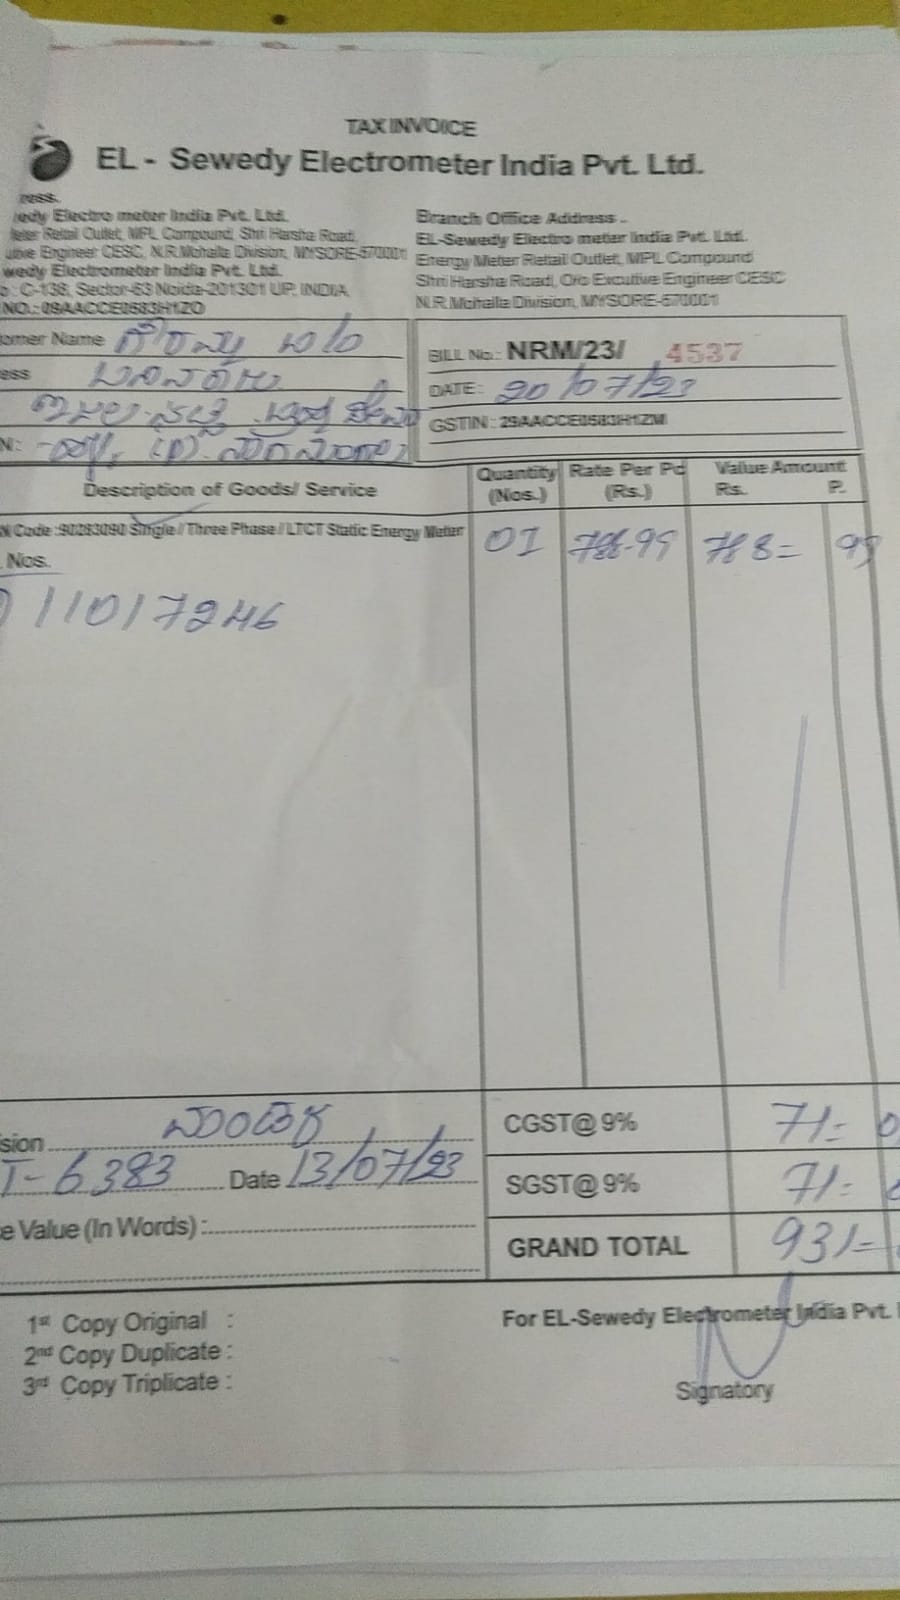 TAX INVOICE
EL - Sewedy Electrometer India Pvt. Ltd.
ress.
edy Electro meter India Pvt. Ltd.
eter Retail Outlet, MPL Compound, Shri Harsha Road,
utive Engineer CESC, N.R.Mohalla Division, MYSORE-570001
wedy Electrometer India Pvt. Ltd.
: C-138, Sector-63 Noida-201301 UP, INDIA
NO.: 09AACCE0583H1ZO
Branch Office Address -
EL-Sewedy Electro meter India Pvt. Ltd.
Energy Meter Retail Outlet, MPL Compound
Shri Harsha Road, O/o Excutive Engineer CESC
N.R.Mohalla Division, MYSORE-570001
omer Name
ess
N:
BILL No.: NRM/23/ 4537
DATE: 20/07/23
GSTIN : 29AACCE0583H1ZM
Description of Goods/ Service
Quantity (Nos.)
Rate Per Pc (Rs.)
Value Amount
Rs. P.
N Code :90283090 Single / Three Phase / LTCT Static Energy Meter
01 788-99 788= 99
Nos.
11017246
sion
CGST@ 9% 71=
I-6383 Date 13/07/23
SGST@ 9% 71=
e Value (In Words) :
GRAND TOTAL 931=
1st Copy Original :
2nd Copy Duplicate :
3rd Copy Triplicate :
For EL-Sewedy Electrometer India Pvt.
Signatory